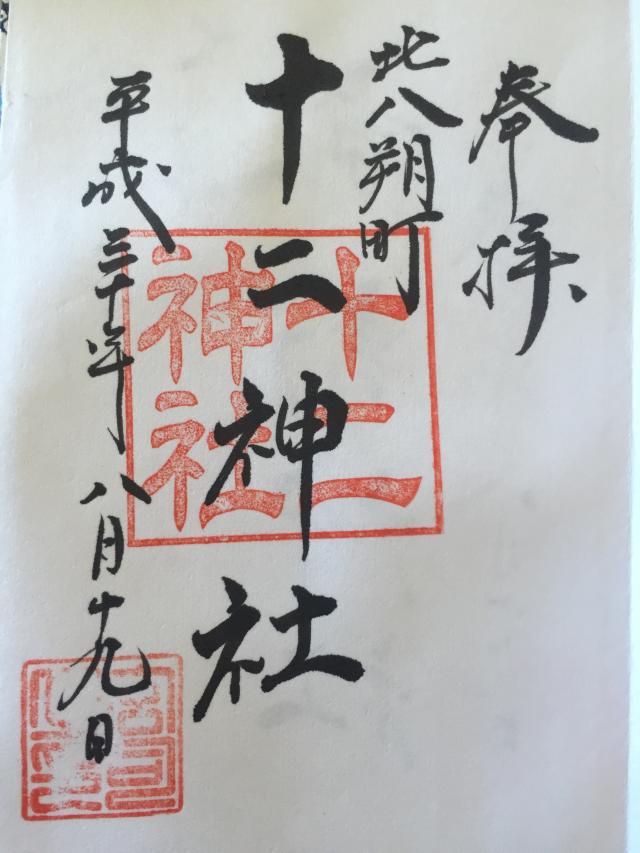 奉拝
北八朔町
十二神社
平成三十年八月十九日
十二
神社